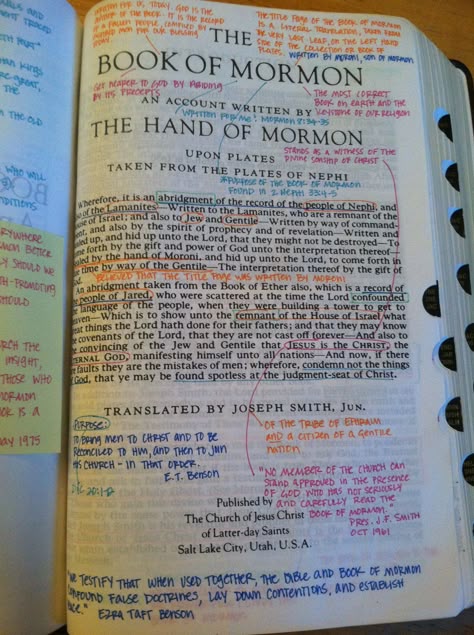 THE TITLE PAGE OF THE BOOK OF MORMON
IS A LITERAL TRANSLATION, TAKEN FROM
THE VERY LAST LEAF, ON THE LEFT HAND
SIDE OF THE COLLECTION OR BOOK OF
PLATES. WRITTEN BY MORONI, SON OF MORMON
THE
BOOK OF MORMON
GET NEARER TO GOD BY ABIDING
BY ITS PRECEPTS
THE MOST CORRECT
BOOK ON EARTH AND THE
KEYSTONE OF OUR RELIGION
AN ACCOUNT WRITTEN BY
WRITTEN FOR ME! MORMON 8:34-35
THE HAND OF MORMON
STANDS AS A WITNESS OF THE
DIVINE SONSHIP OF CHRIST
UPON PLATES
TAKEN FROM THE PLATES OF NEPHI
PURPOSE OF THE BOOK OF MORMON
FOUND IN 2 NEPHI 33:4-5
Wherefore, it is an abridgment of the record of the people of Nephi, and
also of the Lamanites—Written to the Lamanites, who are a remnant of the
house of Israel; and also to Jew and Gentile—Written by way of command-
ment, and also by the spirit of prophecy and of revelation—Written and
sealed up, and hid up unto the Lord, that they might not be destroyed—To
come forth by the gift and power of God unto the interpretation thereof—
Sealed by the hand of Moroni, and hid up unto the Lord, to come forth in
due time by way of the Gentile—The interpretation thereof by the gift of
God.
BELIEVED THAT THE TITLE PAGE WAS WRITTEN BY MORONI
An abridgment taken from the Book of Ether also, which is a record of
the people of Jared, who were scattered at the time the Lord confounded
the language of the people, when they were building a tower to get to
heaven—Which is to show unto the remnant of the House of Israel what
great things the Lord hath done for their fathers; and that they may know
the covenants of the Lord, that they are not cast off forever—And also to
the convincing of the Jew and Gentile that JESUS is the CHRIST, the
ETERNAL GOD, manifesting himself unto all nations—And now, if there
are faults they are the mistakes of men; wherefore, condemn not the things
of God, that ye may be found spotless at the judgment-seat of Christ.
TRANSLATED BY JOSEPH SMITH, JUN.
PURPOSE:
TO BRING MEN TO CHRIST AND TO BE
RECONCILED TO HIM, AND THEN TO JOIN
HIS CHURCH - IN THAT ORDER.
E.T. BENSON
OF THE TRIBE OF EPHRAIM
AND A CITIZEN OF A GENTILE
NATION
"NO MEMBER OF THE CHURCH CAN
STAND APPROVED IN THE PRESENCE
OF GOD WHO HAS NOT SERIOUSLY
AND CAREFULLY READ THE
BOOK OF MORMON."
PRES. J.F. SMITH
OCT 1961
Published by
The Church of Jesus Christ
of Latter-day Saints
Salt Lake City, Utah, U.S.A.
"WE TESTIFY THAT WHEN USED TOGETHER, THE BIBLE AND BOOK OF MORMON
CONFOUND FALSE DOCTRINES, LAY DOWN CONTENTIONS, AND ESTABLISH
PEACE." EZRA TAFT BENSON